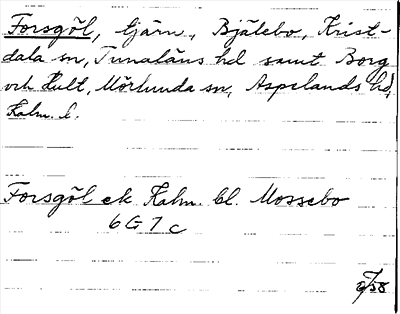 Forsgöl, tjärn, Bjälebo, Krist-
dala sn, Tunaläns hd samt Borg
och Hult, Mörlunda sn, Aspelands hd,
Kalm. l.
Forsgöl ek. Kalm. bl. Mossebo
6 G 7 c